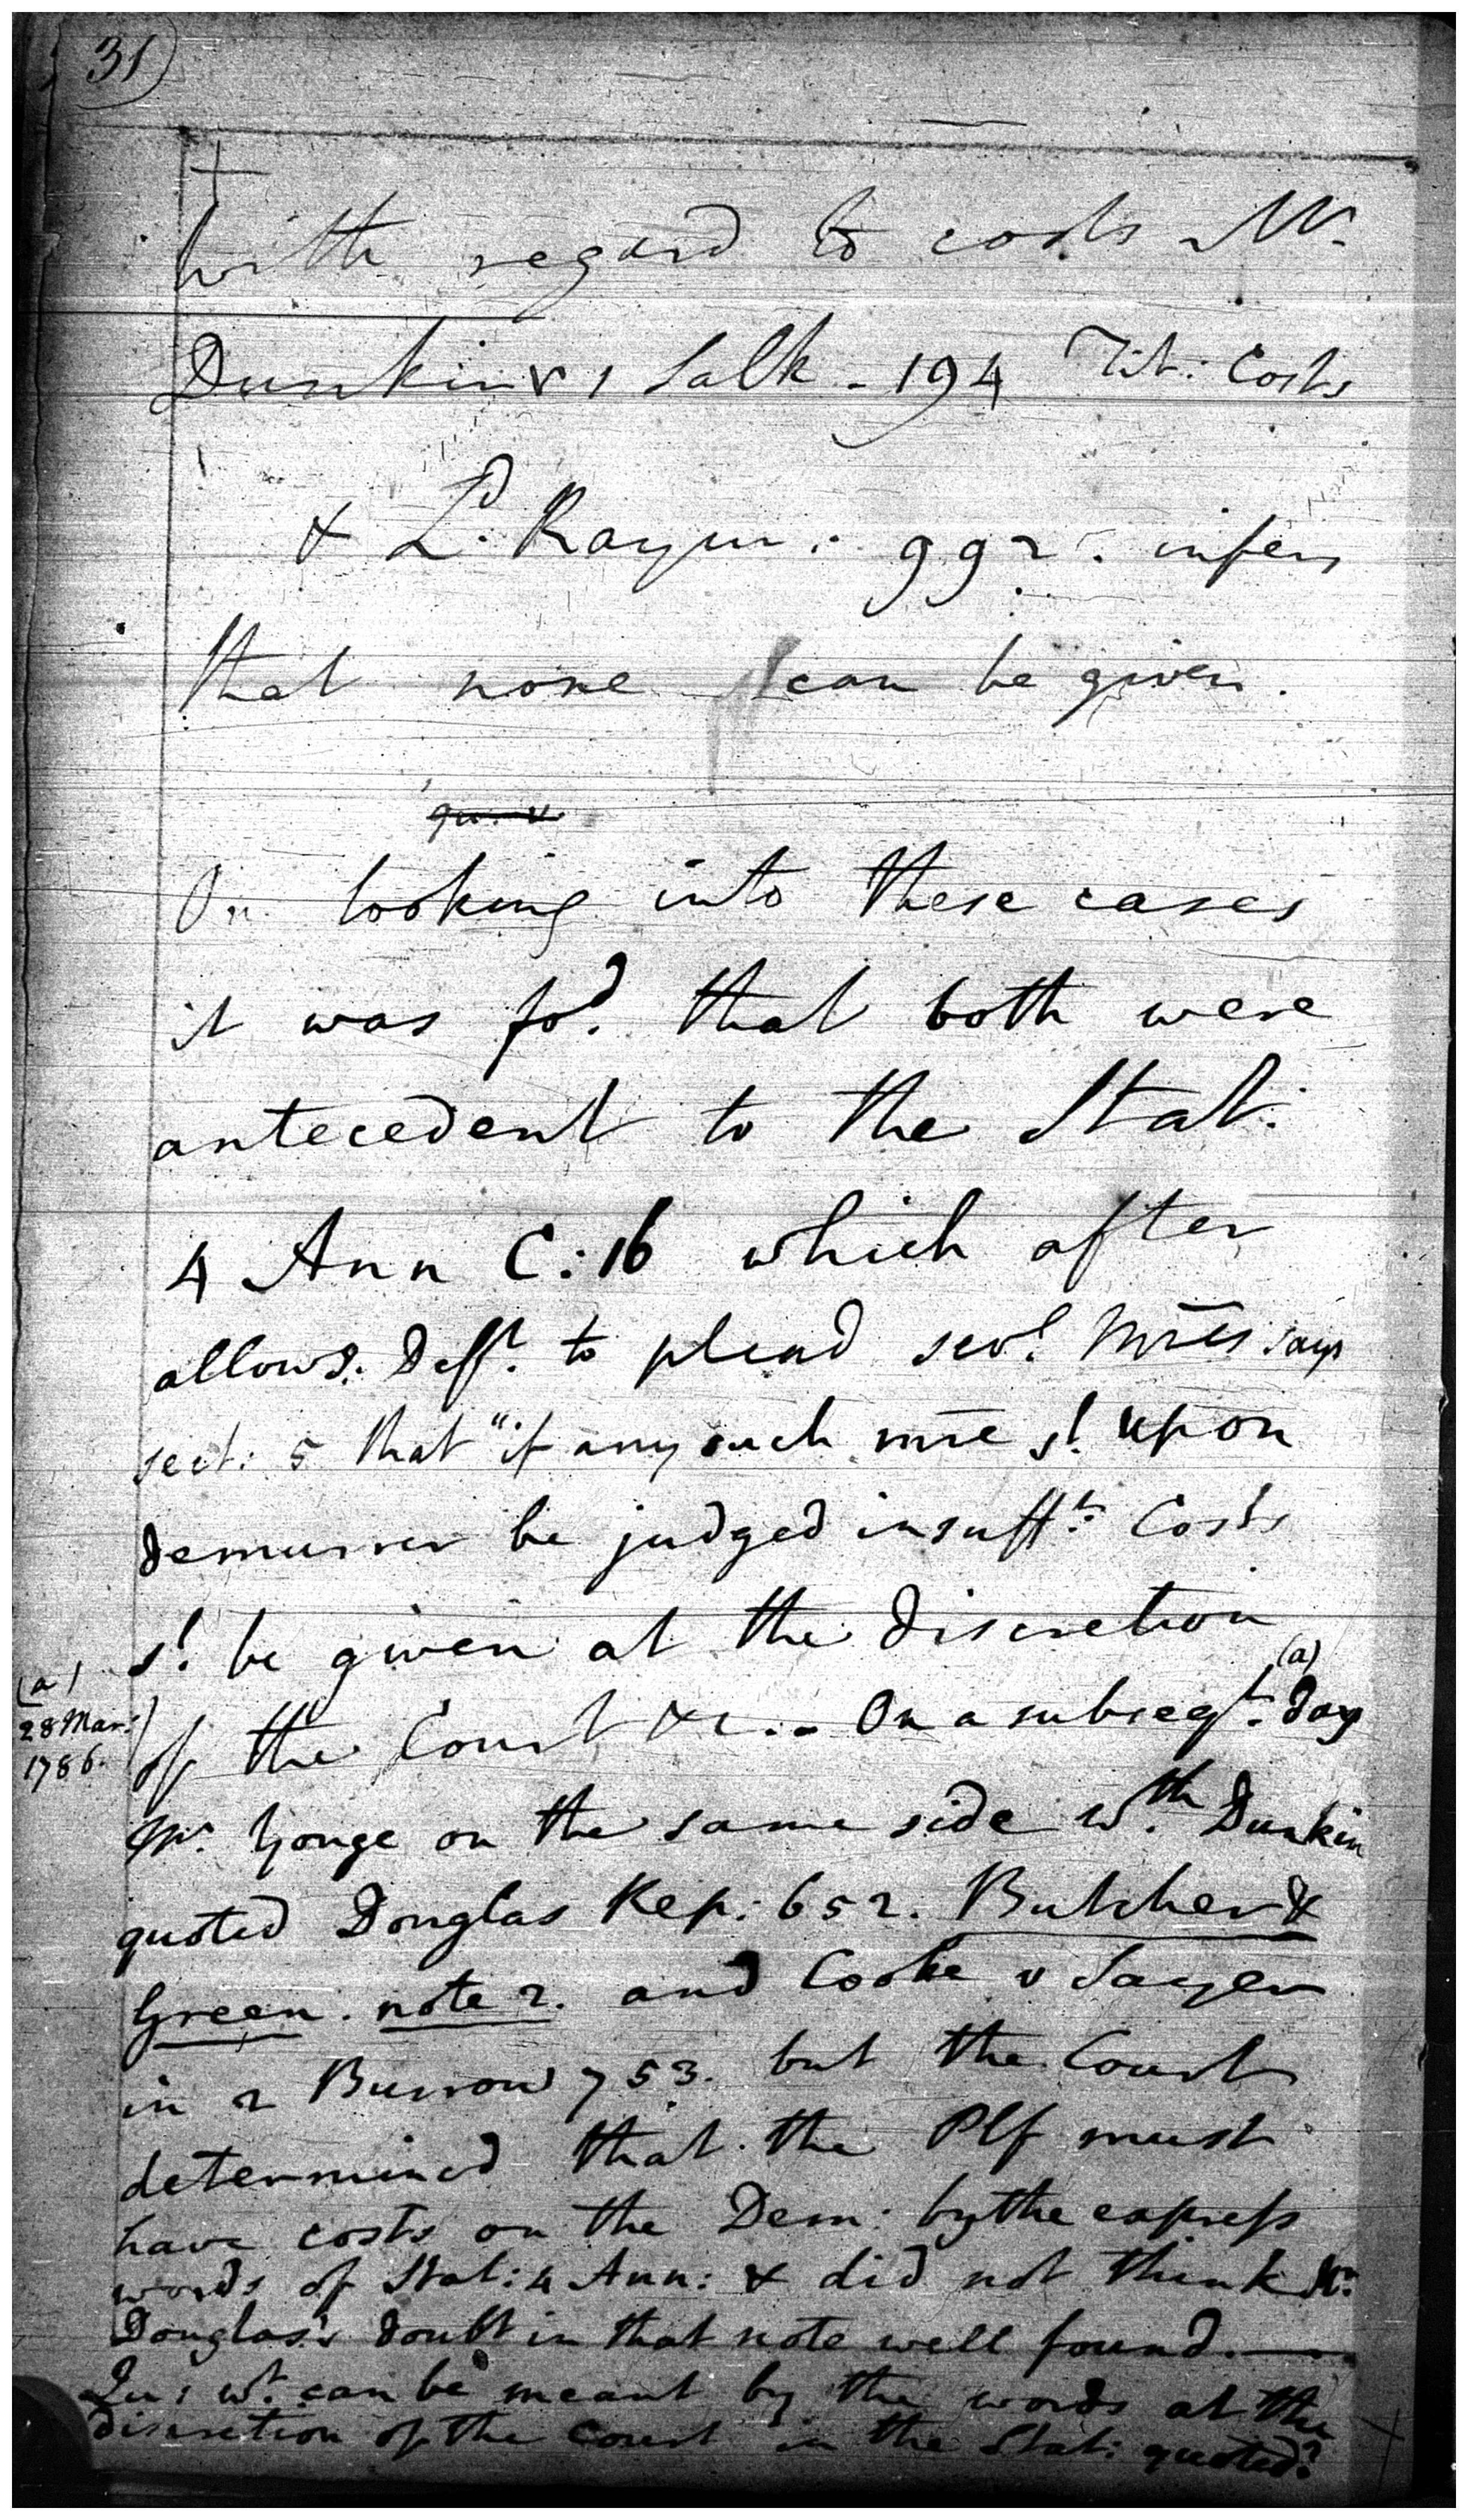 31)
With regard to costs Mr.
Dunkin v 1 Salk - 194 Tit: Costs
& Ld. Raym: 992. infers
that none can be given.
qu: v
On looking into these cases
it was fod. that both were
antecedent to the Stat:
4 Ann C: 16 which after
allowg. Defft. to plead sevl. Mrēs says
sect: 5 that "if any such mre sl. upon
demurrer be judged insufft. Costs
sl. be given at the discretion
of the Court &c. - On a subseqt. day (a)
(a)
28 Mar:
1786.
Mr. Yonge on the same side wth. Dunkin
quoted Douglas Rep: 652. Butcher &
Green. note 2. and Cooke v Sayer
in 2 Burrow 753. but the Court
determined that the Plf must
have costs on the Dem: by the express
words of Stat: 4 Ann: & did not think Mr.
Douglas's doubt in that note well found. —
Qu: wt. can be meant by the words at the
discretion of the Court in the Stat: quoted?